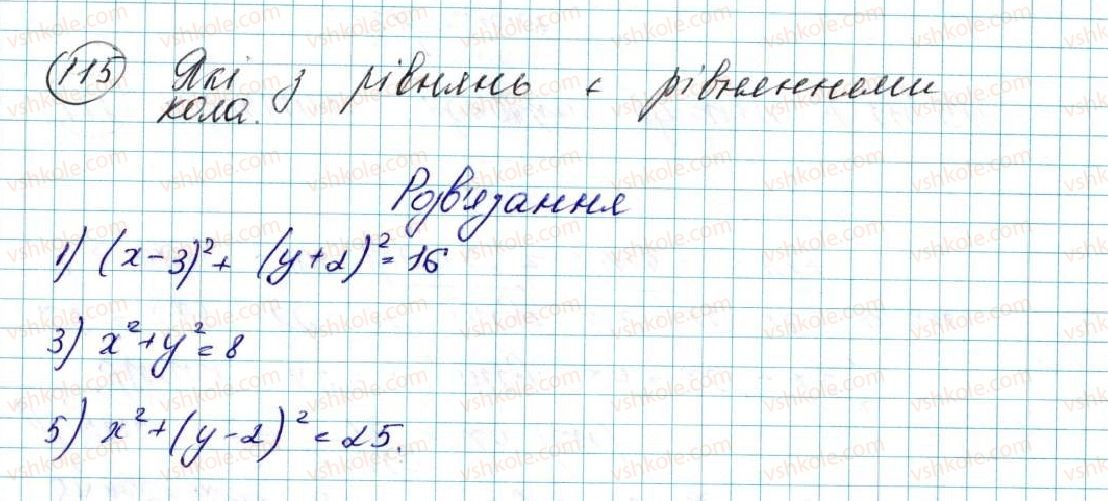 115 Які з рівнянь є рівняннями
кола.
Розв'язання
1) (x-3)²+ (y+2)²=16
3) x²+y²=8
5) x²+(y-2)²=25.